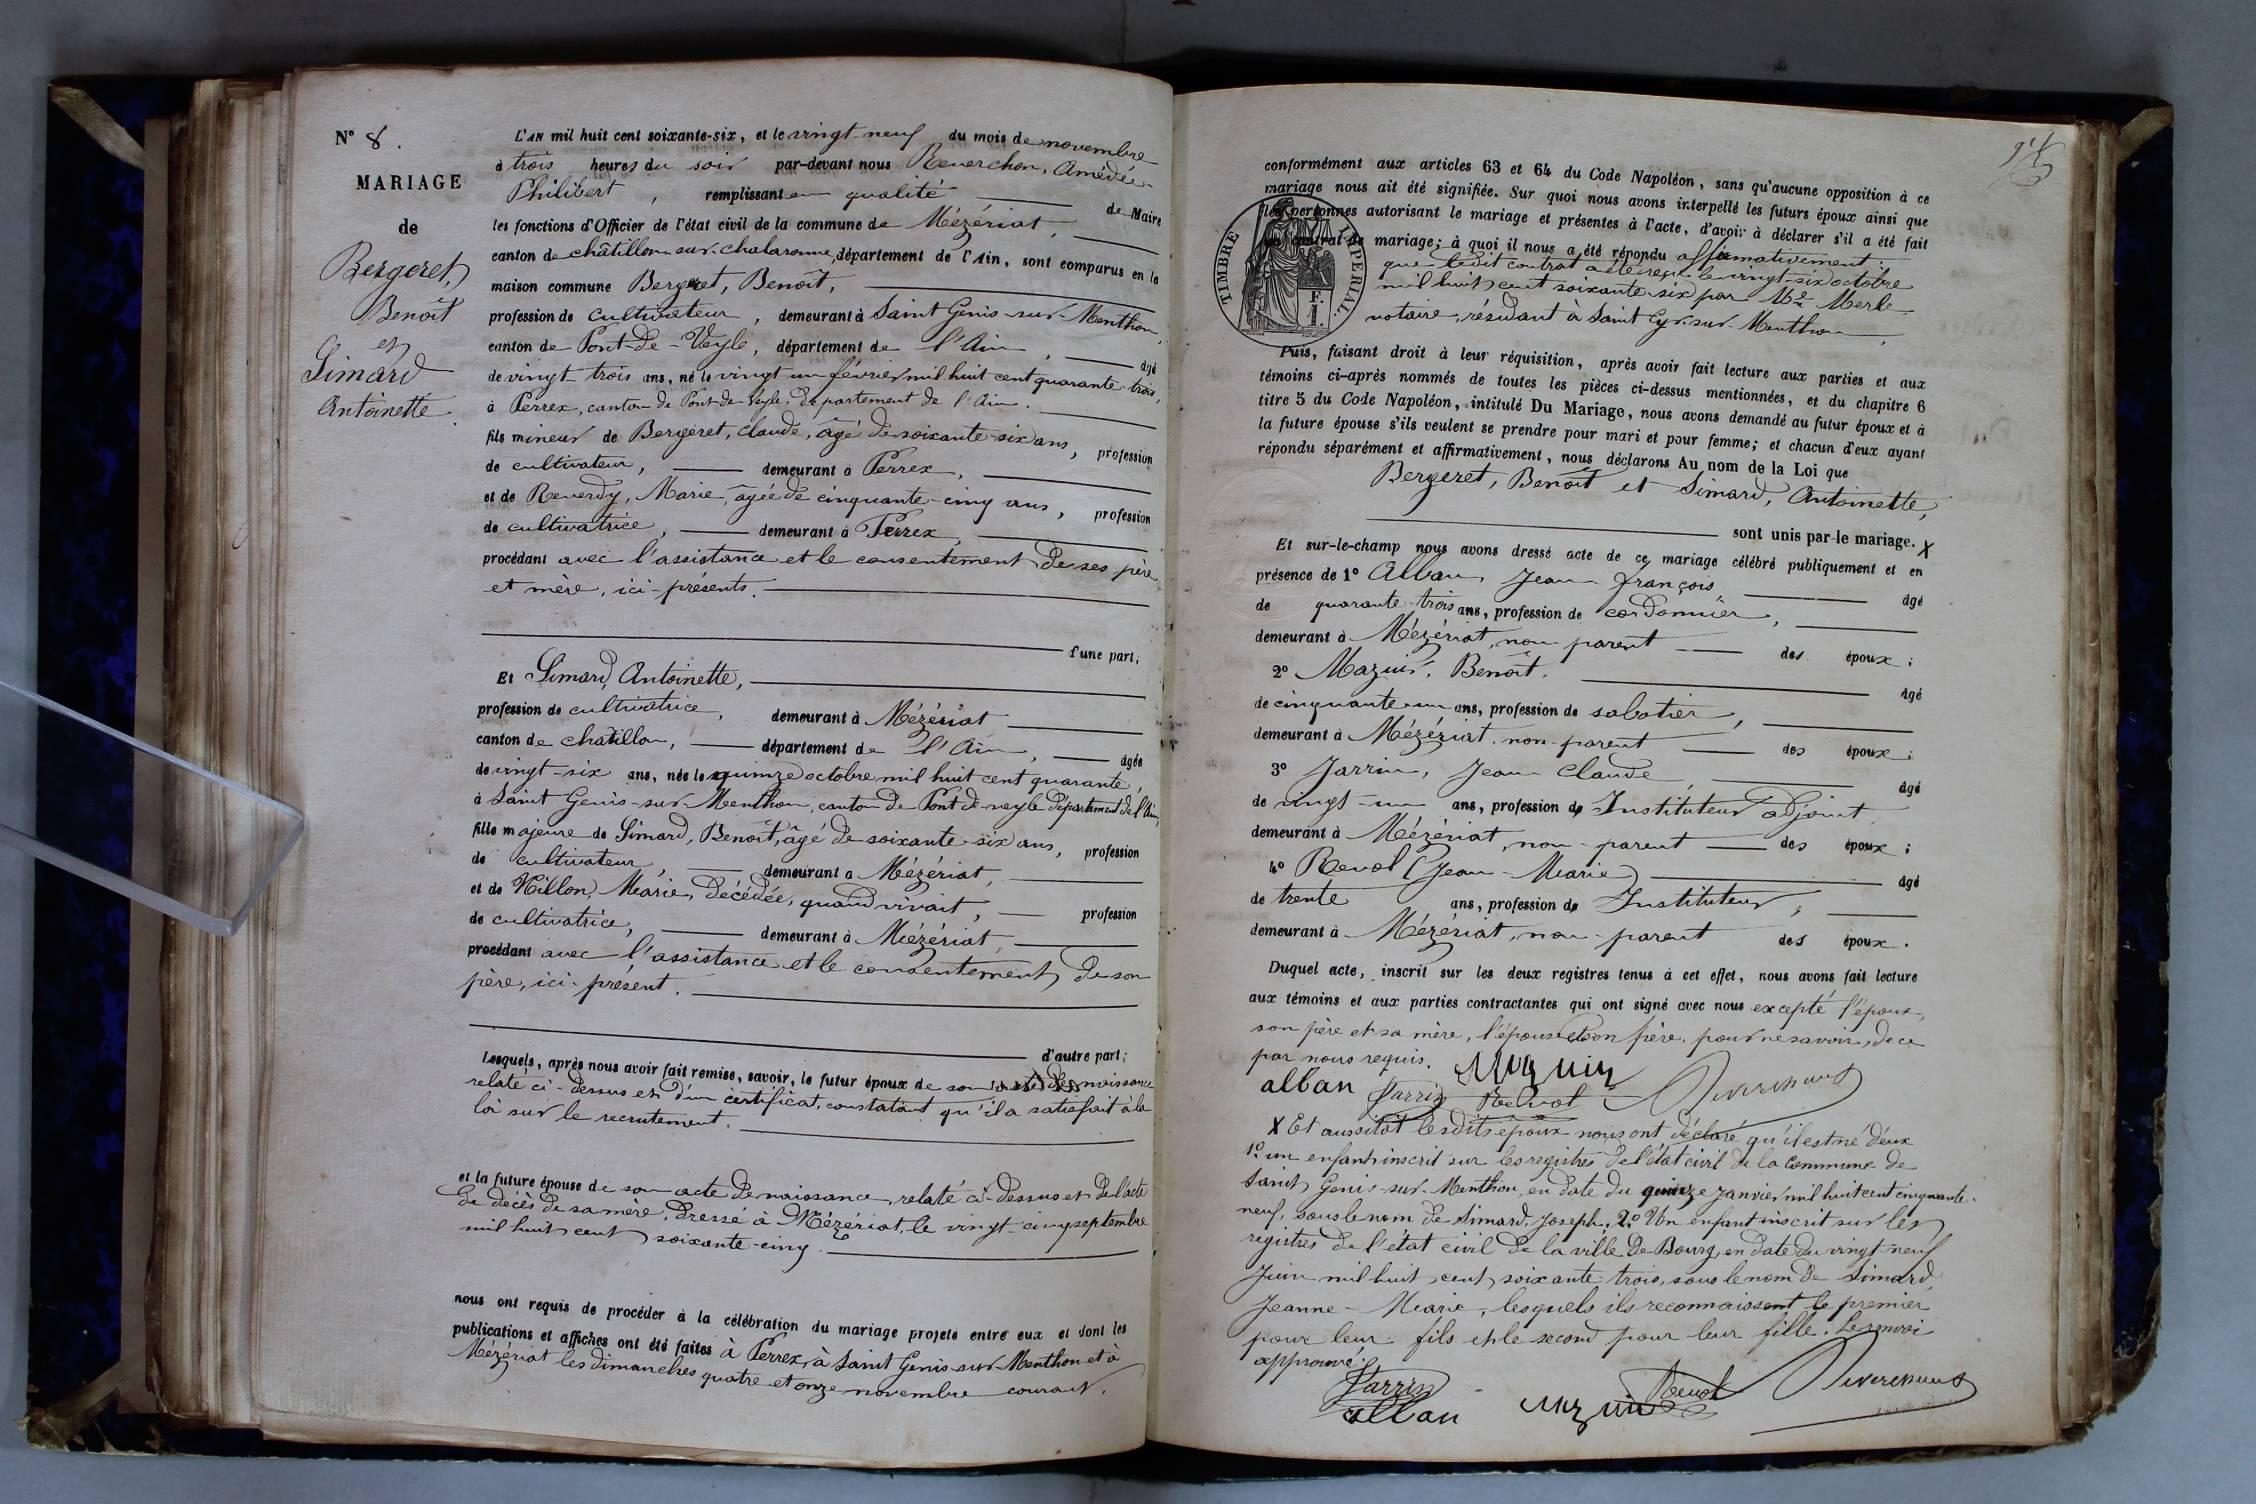 N° 8.
MARIAGE
de
Bergeret,
Benoît
et
Simard
Antoinette.
L'AN mil huit cent soixante-six, et le vingt-neuf du mois de novembre
à trois heures du soir par-devant nous Reverchon, Amédée-
Philibert, remplissant en qualité de Maire
les fonctions d'Officier de l'état civil de la commune de Mézériat,
canton de châtillon-sur-chalaronne, département de l'Ain, sont comparus en la
maison commune Bergeret, Benoît,
profession de cultivateur, demeurant à Saint Genis-sur-Menthon,
canton de Pont-de-Veyle, département de l'Ain, âgé
de vingt-trois ans, né le vingt un février mil huit cent quarante-trois,
à Perrex, canton de Pont-de-Veyle, département de l'Ain.
fils mineur de Bergeret, Claude, âgé de soixante-six ans, profession
de cultivateur, demeurant à Perrex,
et de Reverdy, Marie, âgée de cinquante-cinq ans, profession
de cultivatrice, demeurant à Perrex,
procédant avec l'assistance et le consentement de ses père
et mère, ici-présents.
d'une part;
Et Simard, Antoinette,
profession de cultivatrice, demeurant à Mézériat
canton de châtillon, département de l'Ain, âgée
de vingt-six ans, née le quinze octobre mil huit cent quarante,
à Saint Genis-sur-Menthon, canton de Pont-de-veyle département de l'Ain,
fille majeure de Simard, Benoît, âgé de soixante-six ans, profession
de cultivateur, demeurant à Mézériat,
et de Nillon, Marie, décédée, quand vivait, profession
de cultivatrice, demeurant à Mézériat,
procédant avec l'assistance et le consentement de son
père, ici-présent.
d'autre part;
Lesquels, après nous avoir fait remise, savoir, le futur époux de son acte de naissance
relaté ci-dessus et d'un certificat, constatant qu'il a satisfait à la
loi sur le recrutement.
et la future épouse de son acte de naissance, relaté ci-dessus et de l'acte
de décès de sa mère, dressé à Mézériat, le vingt-cinq septembre
mil huit cent soixante-cinq.
nous ont requis de procéder à la célébration du mariage projeté entre eux et dont les
publications et affiches ont été faites à Perrex, à Saint Genis-sur-Menthon et à
Mézériat les dimanches quatre et onze novembre courant.
conformément aux articles 63 et 64 du Code Napoléon, sans qu'aucune opposition à ce
mariage nous ait été signifiée. Sur quoi nous avons interpellé les futurs époux ainsi que
les personnes autorisant le mariage et présentes à l'acte, d'avoir à déclarer s'il a été fait
un contrat de mariage; à quoi il nous a été répondu affirmativement:
que ledit contrat a été reçu le vingt-six octobre
mil huit cent soixante-six par Me Merle
notaire, résidant à Saint Cyr-sur-Menthon,
TIMBRE IMPERIAL
F.
1.
Puis, faisant droit à leur réquisition, après avoir fait lecture aux parties et aux
témoins ci-après nommés de toutes les pièces ci-dessus mentionnées, et du chapitre 6
titre 5 du Code Napoléon, intitulé Du Mariage, nous avons demandé au futur époux et à
la future épouse s'ils veulent se prendre pour mari et pour femme; et chacun d'eux ayant
répondu séparément et affirmativement, nous déclarons Au nom de la Loi que
Bergeret, Benoît et Simard, Antoinette,
sont unis par le mariage. X
Et sur-le-champ nous avons dressé acte de ce mariage célébré publiquement et en
présence de 1° Alban, Jean-François, âgé
de quarante-trois ans, profession de cordonnier,
demeurant à Mézériat, non parent des époux;
2° Mazuir, Benoît, âgé
de cinquante-un ans, profession de sabotier,
demeurant à Mézériat, non-parent des époux;
3° Jarrin, Jean Claude, âgé
de vingt-un ans, profession de Instituteur adjoint
demeurant à Mézériat, non-parent des époux;
4° Revol (Jean-Marie) âgé
de trente ans, profession de Instituteur,
demeurant à Mézériat, non-parent des époux.
Duquel acte, inscrit sur les deux registres tenus à cet effet, nous avons fait lecture
aux témoins et aux parties contractantes qui ont signé avec nous excepté l'époux,
son père et sa mère, l'épouse et son père, pour ne savoir, de ce
par nous requis.
alban Jarrin Mazuir Revol Reverchon
X Et aussitôt lesdits époux nous ont déclaré qu'il est né d'eux
1° un enfant inscrit sur les registres de l'état civil de la commune de
Saint Genis-sur-Menthon, en date du quinze janvier mil huit cent cinquante-
neuf, sous le nom de Simard, Joseph. 2° Un enfant inscrit sur les
registres de l'état civil de la ville de Bourg, en date du vingt-neuf
Juin mil huit cent soixante trois, sous le nom de Simard,
Jeanne-Marie, lesquels ils reconnaissent le premier
pour leur fils et le second pour leur fille. Le renvoi
approuvé.
Jarrin Revol Reverchon
alban Mazuir